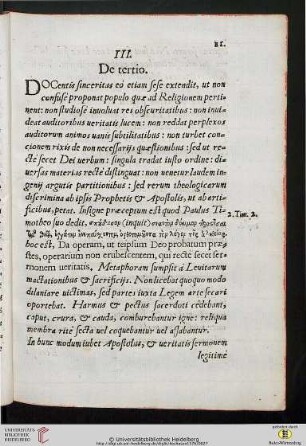 81.
III.
De tertio.
DOcentis sinceritas eò etiam sese extendit, ut non
confusè proponat populo quæ ad Religionem perti-
nent: non studiosè involvat res obscuritatibus: non invi-
deat auditoribus veritatis lucem: non reddat perplexos
auditorum animos vanis subtilitatibus: non turbet con-
cionem rixis de non necessarijs quæstionibus: sed ut re-
ctè secet Dei verbum: singula tradat iusto ordine: di-
versas materias rectè distinguat: non venetur laudem in-
genij argutis partitionibus: sed rerum theologicarum
discrimina ab ipsis Prophetis & Apostolis, ut ab arti-
ficibus, petat. Insigne præceptum est quod Paulus Ti-
motheo suo dedit, (inquit) 2. Tim. 2.
hoc est, Da operam, ut teipsum Deo probatum præ-
stes, operarium non erubescentem, qui rectè secet ser-
monem veritatis, Metaphoram sumpsit à Levitarum
mactationibus & sacrificijs. Non licebat quoquo modo
dilaniare victimas, sed partes iuxta Legem arte secari
oportebat. Harmus & pectus sacerdoti cedebant,
caput, crura, & cauda, comburebantur igne: reliqua
membra ritè secta vel coquebantur vel assabantur.
In hunc modum iubet Apostolus, & veritatis sermonem
legitimè
UNIVERSITÄTS-
BIBLIOTHEK
HEIDELBERG
© Universitätsbibliothek Heidelberg
gefördert durch
Baden-Württemberg